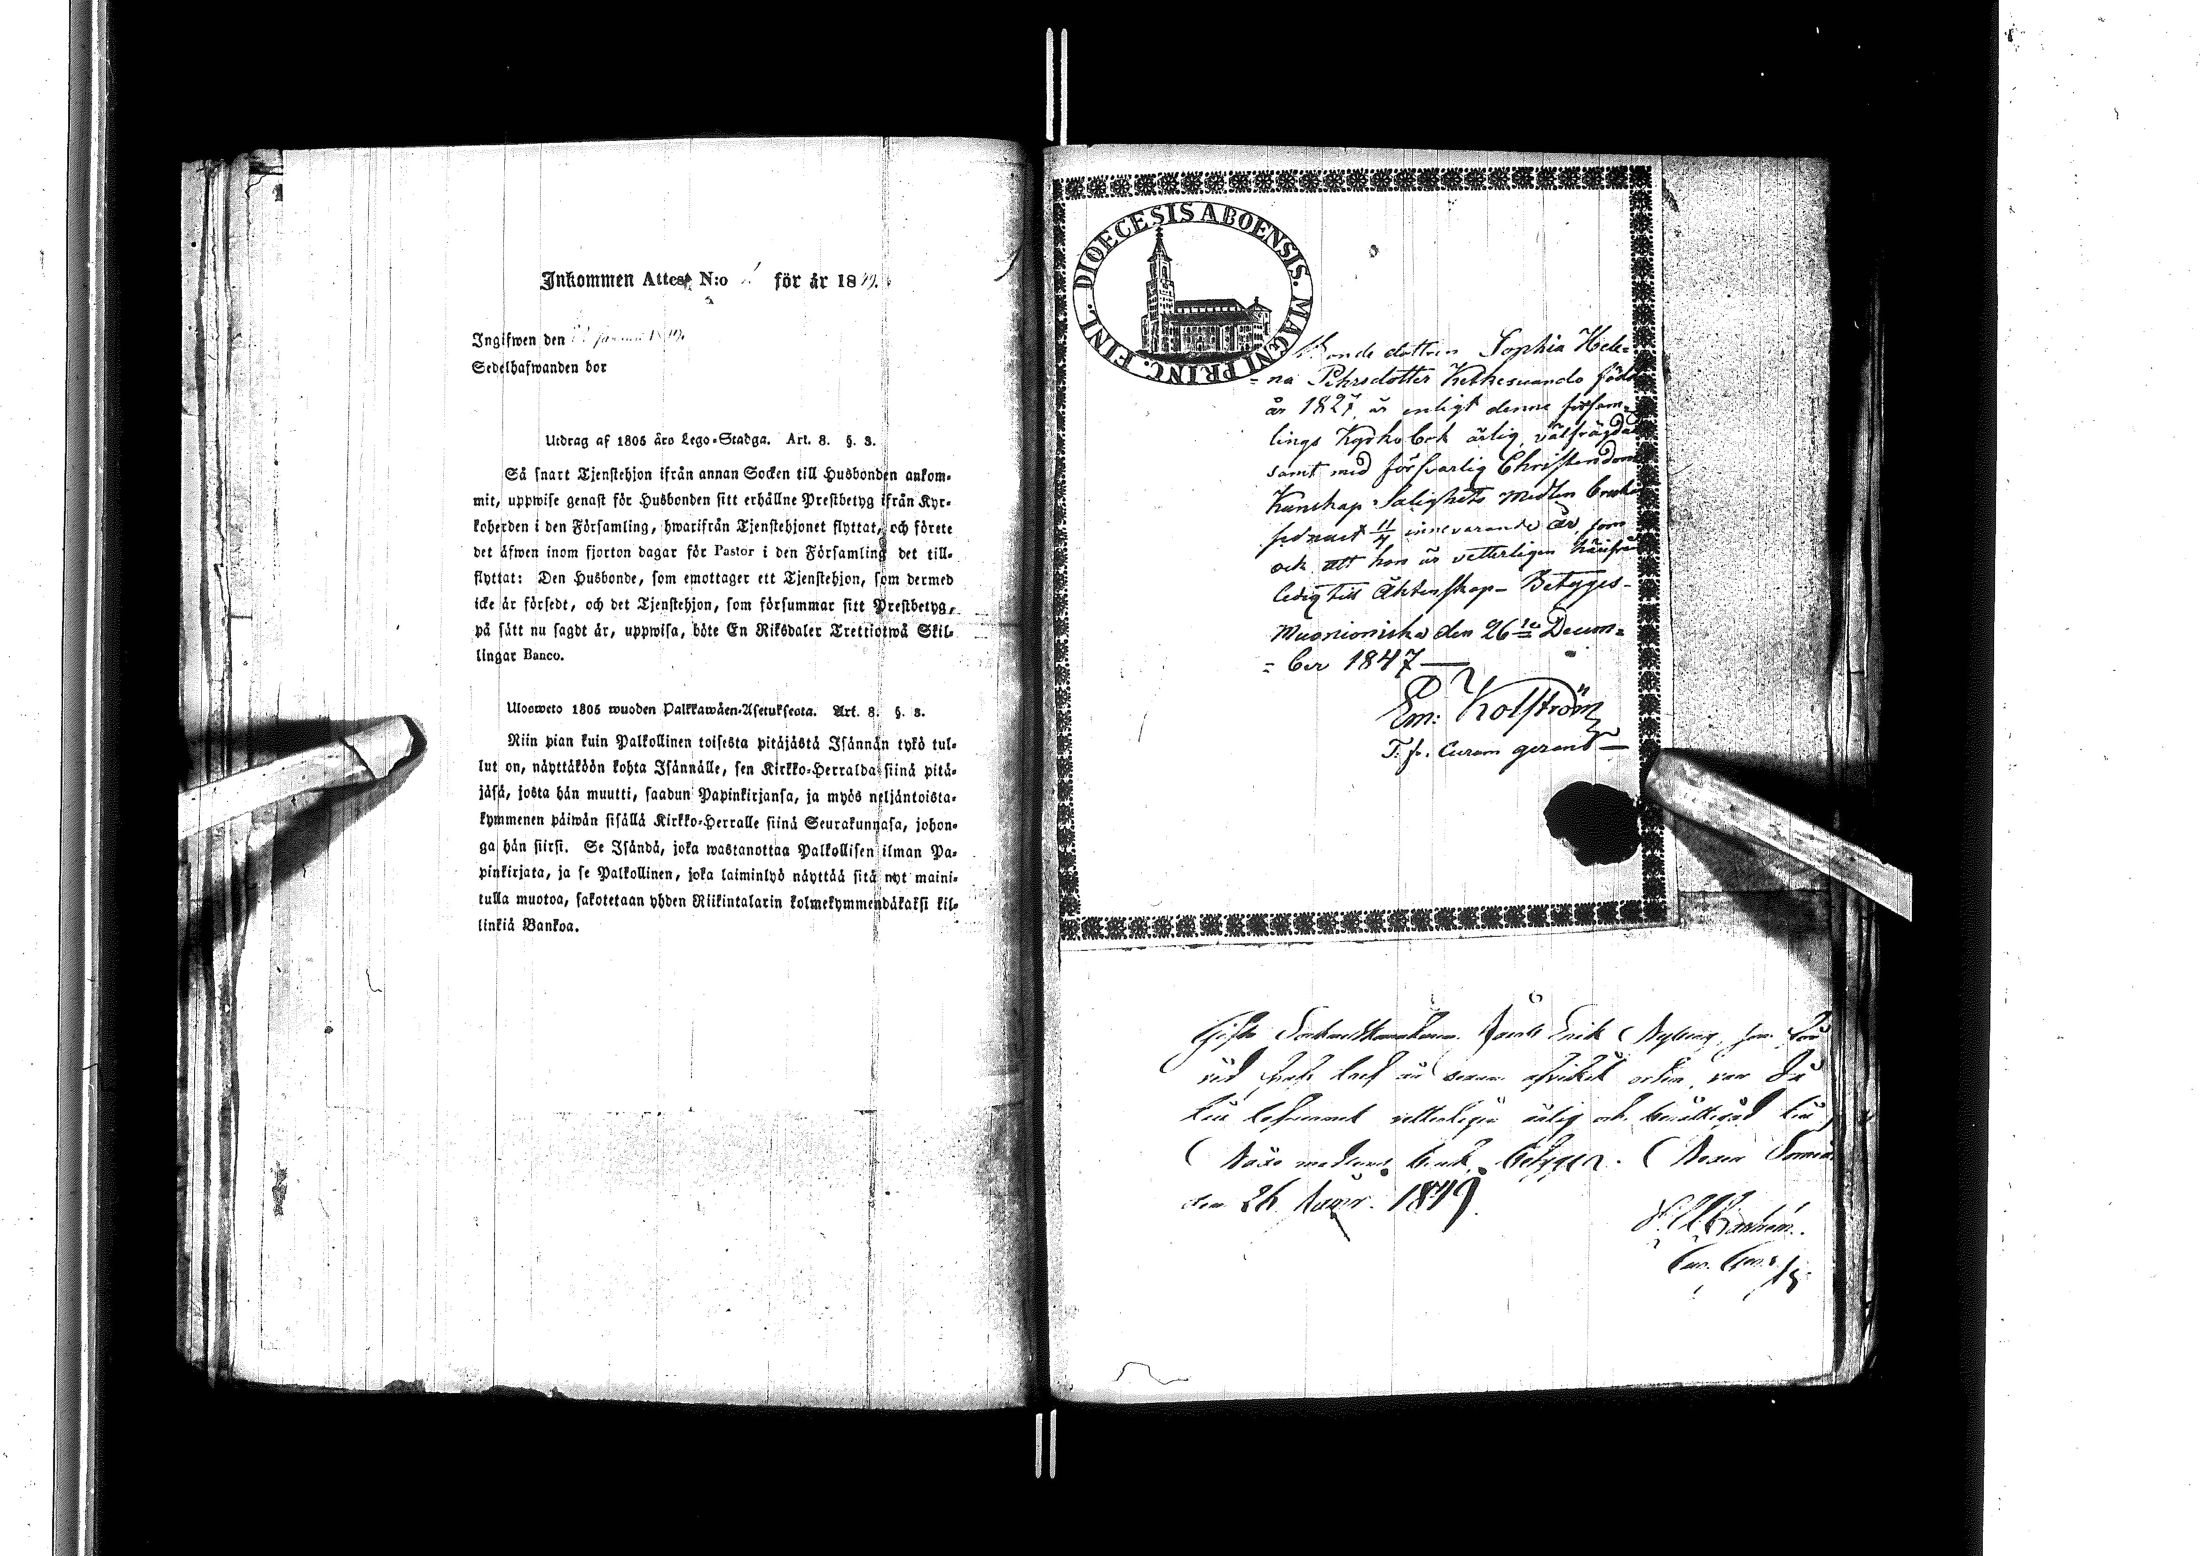 Inkommen Attest N:o för år 1849.
Ingifwen den 1849.
Sedelhafwanden bor
Utdrag af 1805 års Lego-Stadga. Art. 8. §. 3.
Så snart Tjenstehjon ifrån annan Socken till Husbonden ankom-
mit, uppwise genast för Husbonden sitt erhållne Prestbetyg ifrån Kyr-
koherden i den Församling, hwarifrån Tjenstehjonet flyttat, och förete
det äfwen inom fjorton dagar för Pastor i den Församling det till-
flyttat: Den Husbonde, som emottager ett Tjenstehjon, som dermed
icke är försedt, och det Tjenstehjon, som försummar sitt Prestbetyg,
på sätt nu sagdt är, uppwisa, böte En Riksdaler Trettiotwå Skil-
lingar Banco.
Ulosweto 1805 wuoden Palkkawäen-Asetuksesta. Art. 8. §. 3.
Niin pian kuin Palkollinen toisesta pitäjästä Isännän tykö tul-
lut on, näyttäköön kohta Isännälle, sen Kirkko-Herralda siinä pitä-
jäsä, josta hän muutti, saadun Papinkirjansa, ja myös neljäntoista-
kymmenen päiwän sisällä Kirkko-Herralle siinä Seurakunnasa, johon-
ga hän siirsi. Se Isändä, joka wastanottaa Palkollisen ilman Pa-
pinkirjata, ja se Palkollinen, joka laiminlyö näyttää sitä nyt maini-
tulla muotoa, sakotetaan yhden Riikintalarin kolmekymmendäkaksi kil-
linkiä Bankoa.
DIOECESIS ABOENSIS. MAGNI PRINC. FINL.
Bonde dottren Sophia Hele-
na Pehrsdotter Kethesuando född
år 1827, är enligt denne försam-
lings Kyrkobok ärlig, välfrägdad
samt med försvarlig Christendoms
Kunskap Salighets Medlen
sednast 11/4 innevarande år
och att hon är vetterligen härifrån
ledig till Äktenskap - Betyges -
Muonioniska den 26te Decem-
= ber 1847 —
Em: Kolström
T. f. Curam gerens —
Gifte Erik Nyberg,
är orten, var
vetterligen ärlig och berättigad
betygar.
den 26 1849.